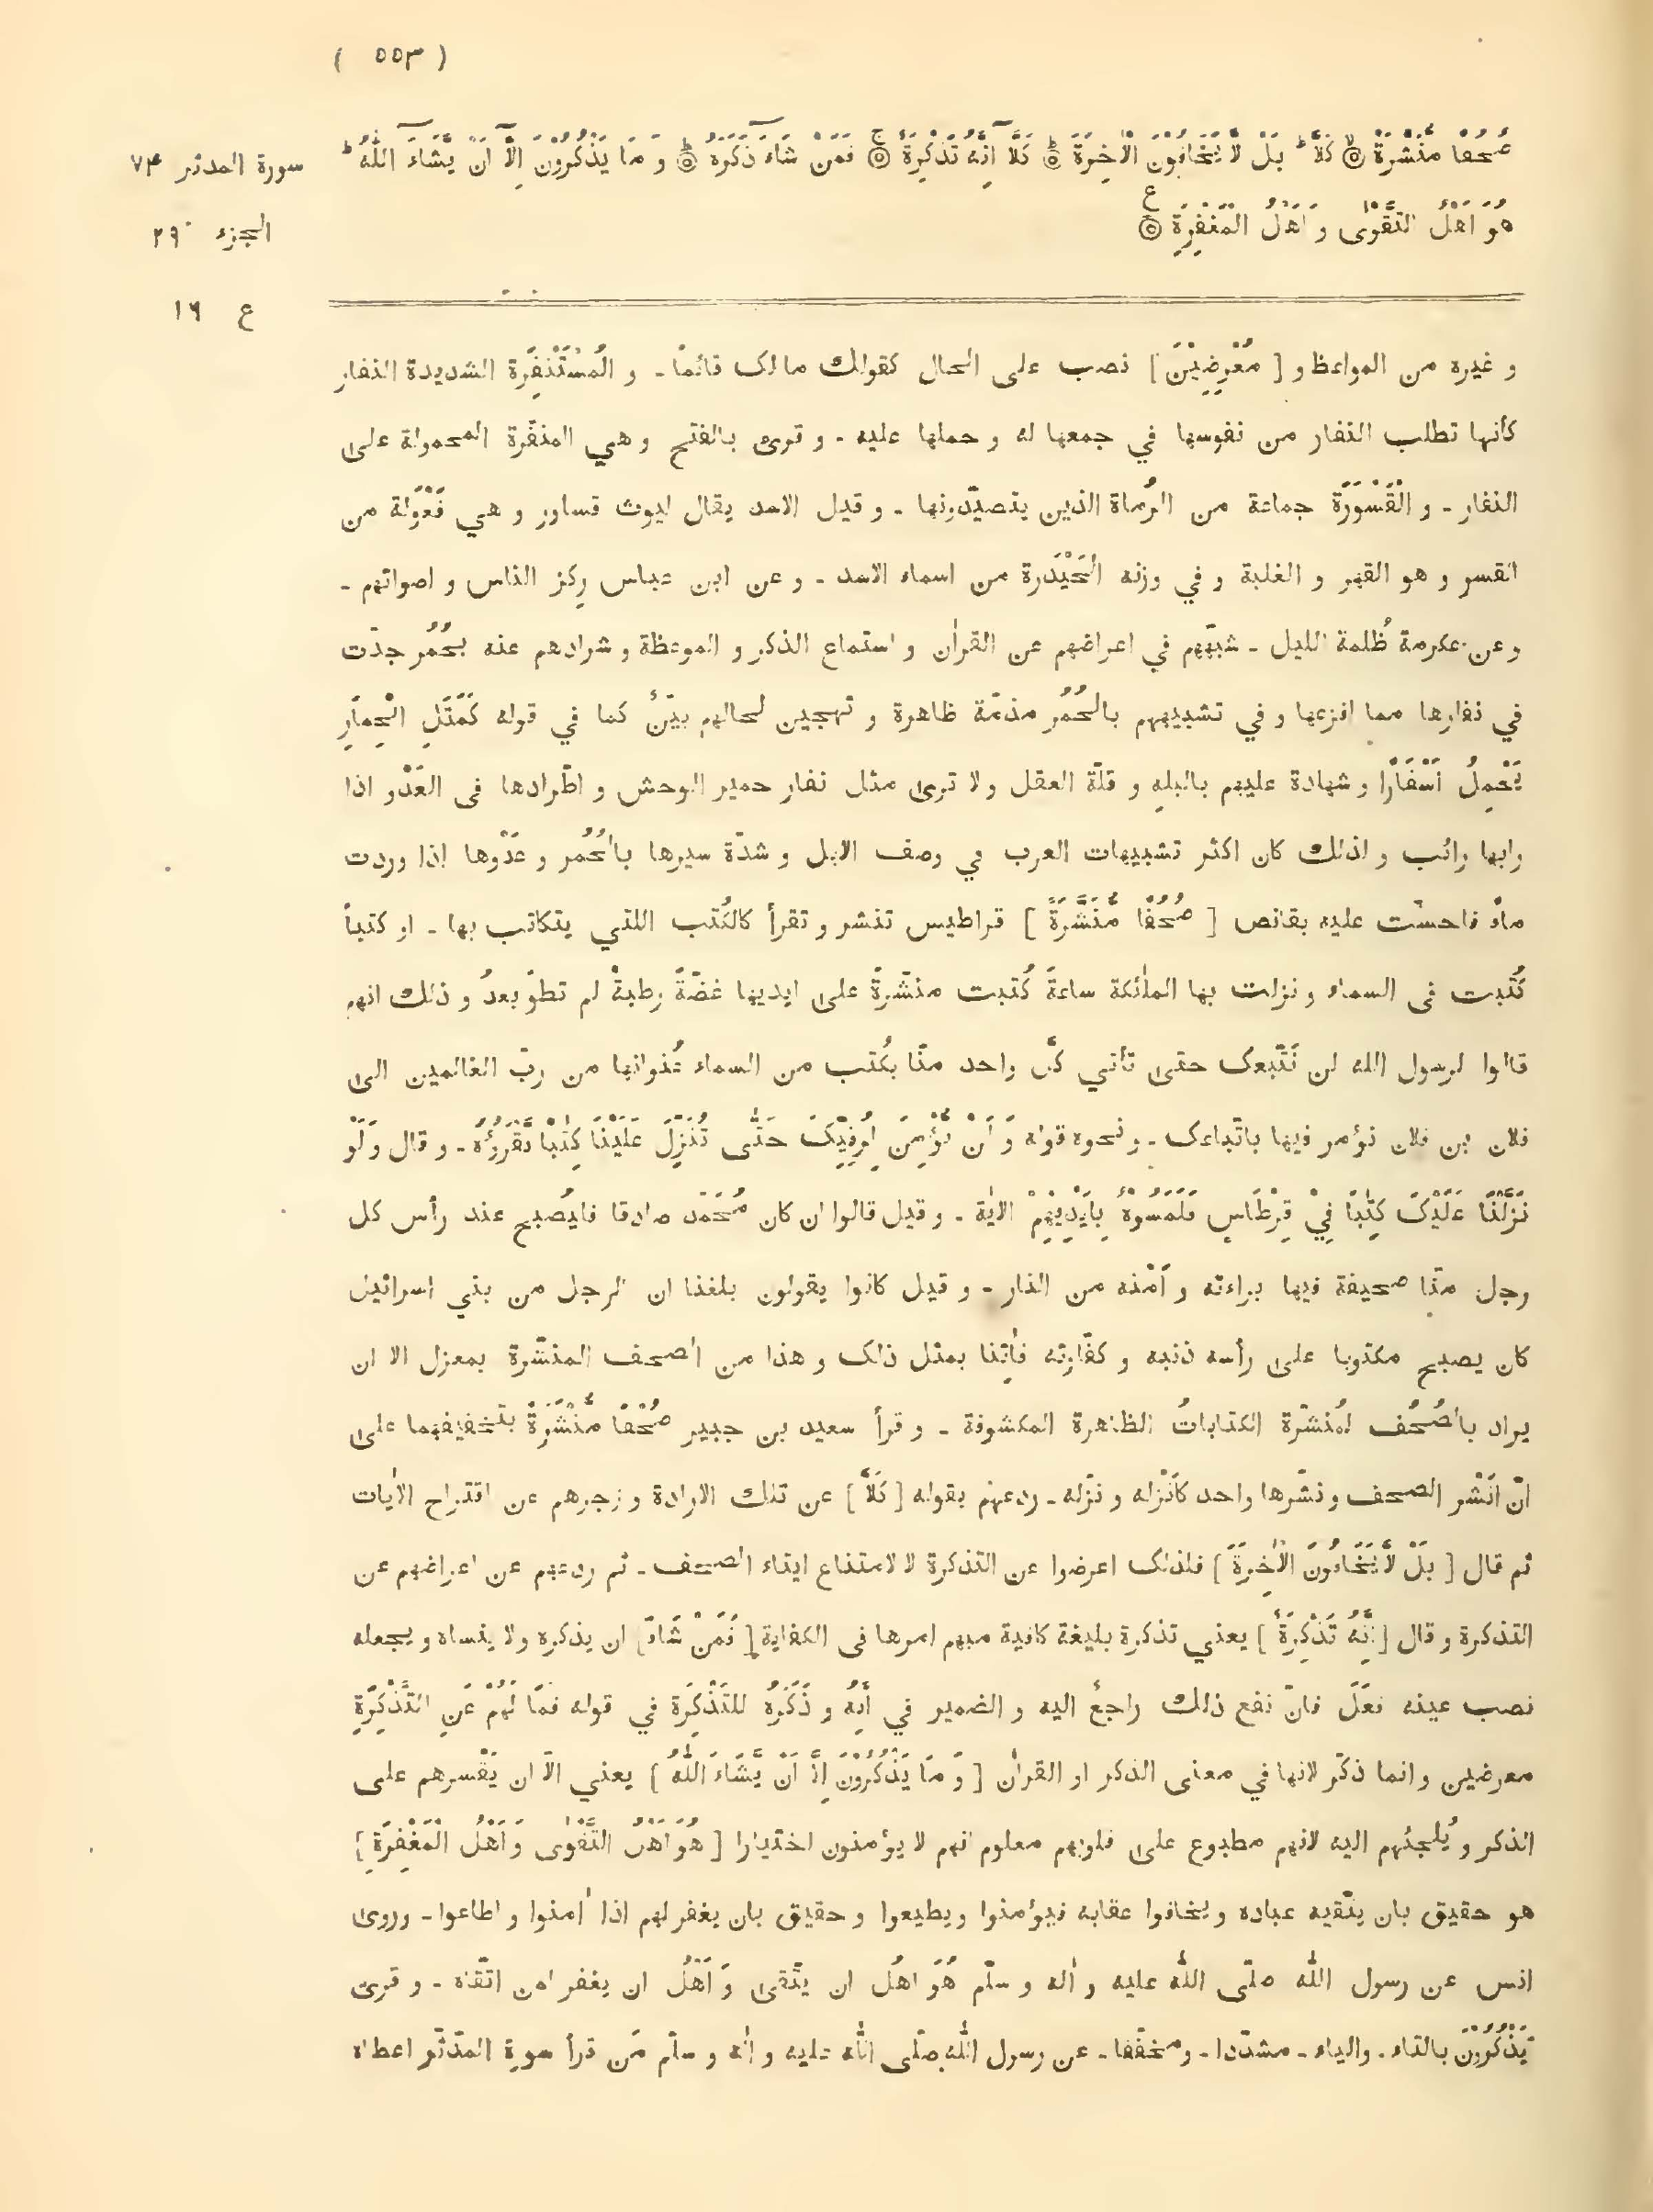 ( ٥٥٣ )
صُحُفًا مُّنَشَّرَةً ۙ كَلَّا ۖ بَلْ لَّا يَخَافُوْنَ الْاٰخِرَةَ ۗ كَلَّآ اِنَّهٗ تَذْكِرَةٌ ۚ فَمَنْ شَآءَ ذَكَرَهٗ ۗ وَ مَا يَذْكُرُوْنَ اِلَّآ اَنْ يَّشَآءَ اللّٰهُ ۗ
هُوَ اَهْلُ التَّقْوٰى وَ اَهْلُ الْمَغْفِرَةِ ع
سورة المدثر ٧٤
الجزء ٢٩
ع ١٦
و غيره من المواعظ و [ مُعْرِضِيْنَ ] نصب على الحال كقولك مالك قائمًا ـ و المُسْتَنْفِرة الشديدة النفار
كأنها تطلب النفار من نفوسها في جمعها له و حملها عليه ـ و قرئ بالفتح و هي المنفّرة المحمولة على
النفار ـ و الْقَسْوَرَة جماعة من الرُماة الذين يتصيّدونها ـ و قيل الاسد يقال ليوث قساور و هي فَعْوَلة من
القسر و هو القهر و الغلبة و في وزنه الحَيْدَرة من اسماء الاسد ـ و عن ابن عباس رِكز الناس و اصواتهم ـ
و عن عكرمة ظُلمة الليل ـ شبّههم في اعراضهم عن القراٰن و استماع الذكر و الموعظة و شرادهم عنه بحُمُر جدّت
في نفارها مما افزعها و في تشبيههم بالحُمُر مذمّة ظاهرة و تهجين لحالهم بيّنٌ كما في قوله كَمَثَلِ الْحِمَارِ
يَحْمِلُ اَسْفَارًا و شهادة عليهم بالبله و قلّة العقل و لا ترى مثل نفار حمير الوحش و اطّرادها فى العَدْو اذا
رابها رائب و لذلك كان اكثر تشبيهات العرب في وصف الابل و شدّة سيرها بالحُمُر و عَدْوها اذا وردت
ماءً فاحسّت عليه بقانص [ صُحُفًا مُّنَشَّرَةً ] قراطيس تنشر و تقرأ كالكُتب اللتي يتكاتب بها ـ او كتبًا
كُتبت فى السماء و نزلت بها الملٰئكة ساعةَ كُتبت منشّرةً على ايديها غضّةً رطبةً لم تطوَ بعدُ و ذلك انهم
قالوا لرسول الله لن نَتّبعك حتى تأتي كلّ واحد منّا بكُتب من السماء عُنوانها من ربّ العالمين الى
فلان بن فلان نؤمر فيها باتّباعك ـ و نحوه قوله وَ لَنْ نُّؤْمِنَ لِرُقِيِّكَ حَتّٰى تُنَزِّلَ عَلَيْنَا كِتٰبًا نَّقْرَؤُهٗ ـ و قال وَ لَوْ
نَزَّلْنَا عَلَيْكَ كِتٰبًا فِيْ قِرْطَاسٍ فَلَمَسُوْهُ بِاَيْدِيْهِمْ الاٰية ـ و قيل قالوا ان كان مُحَمّد صادقا فليُصبح عند رأس كل
رجل منّا صحيفة فيها براءته و اَمْنه من النار ـ و قيل كانوا يقولون بلغنا ان الرجل من بني اسرائيل
كان يصبح مكتوبا على رأسه ذنبه و كفّارته فأتِنا بمثل ذلك و هذا من الصحف المنشّرة بمعزل الا ان
يراد بالصُحُف المُنشّرة الكتاباتُ الظاهرة المكشوفة ـ و قرأ سعيد بن جبير صُحْفًا مُّنْشَرَةً بتخفيفهما على
انّ اَنْشَر الصحف و نشّرها واحد كاَنْزله و نزّله ـ ردعهم بقوله [ كَلَّا ] عن تلك الارادة و زجرهم عن اقتراح الاٰيات
ثم قال [ بَلْ لَا يَخَافُوْنَ الْاٰخِرَةَ ] فلذلك اعرضوا عن التذكرة لا لامتناع ايتاء الصحف ـ ثم ردعهم عن اعراضهم عن
التذكرة و قال [ اِنَّهٗ تَذْكِرَةٌ ] يعني تذكرة بليغة كافية مبهم امرها فى الكفاية [ فَمَنْ شَاءَ ] ان يذكره و لا ينساه و يجعله
نصب عينه فعَلَ فانّ نفع ذلك راجعٌ اليه و الضمير في اِنّهُ و ذَكَرَهُ للتَذْكِرَة في قوله فَمَا لَهُمْ عَنِ التَّذْكِرَةِ
معرضين و انما ذكّر لانها في معنى الذكر او القراٰن [ وَ مَا يَذْكُرُوْنَ اِلَّا اَنْ يَّشَاءَ اللّٰهُ ] يعني الّا ان يَقْسرهم على
الذكر و يُلجئهم اليه لانهم مطبوع على قلوبهم معلوم انهم لا يؤمنون اختيارا [ هُوَ اَهْلُ التَّقْوٰى وَ اَهْلُ الْمَغْفِرَةِ ]
هو حقيق بان يتّقيه عباده و يخافوا عقابه فيؤمنوا و يطيعوا و حقيق بان يغفر لهم اذا اٰمنوا و اطاعوا ـ و روى
انس عن رسول اللّٰه صلّى اللّٰه عليه و اٰله و سلّم هُوَ اهلُ ان يتّقى وَ اَهْلُ ان يغفر لمن اتّقاه ـ و قرئ
يَذْكُرُوْنَ بالتاء ـ و الياء ـ مشدّدا ـ و مخفّفا ـ عن رسول اللّٰه صلّى اللّٰه عليه و اٰله و سلّم مَن قرأ سورة المدّثّر اعطاه